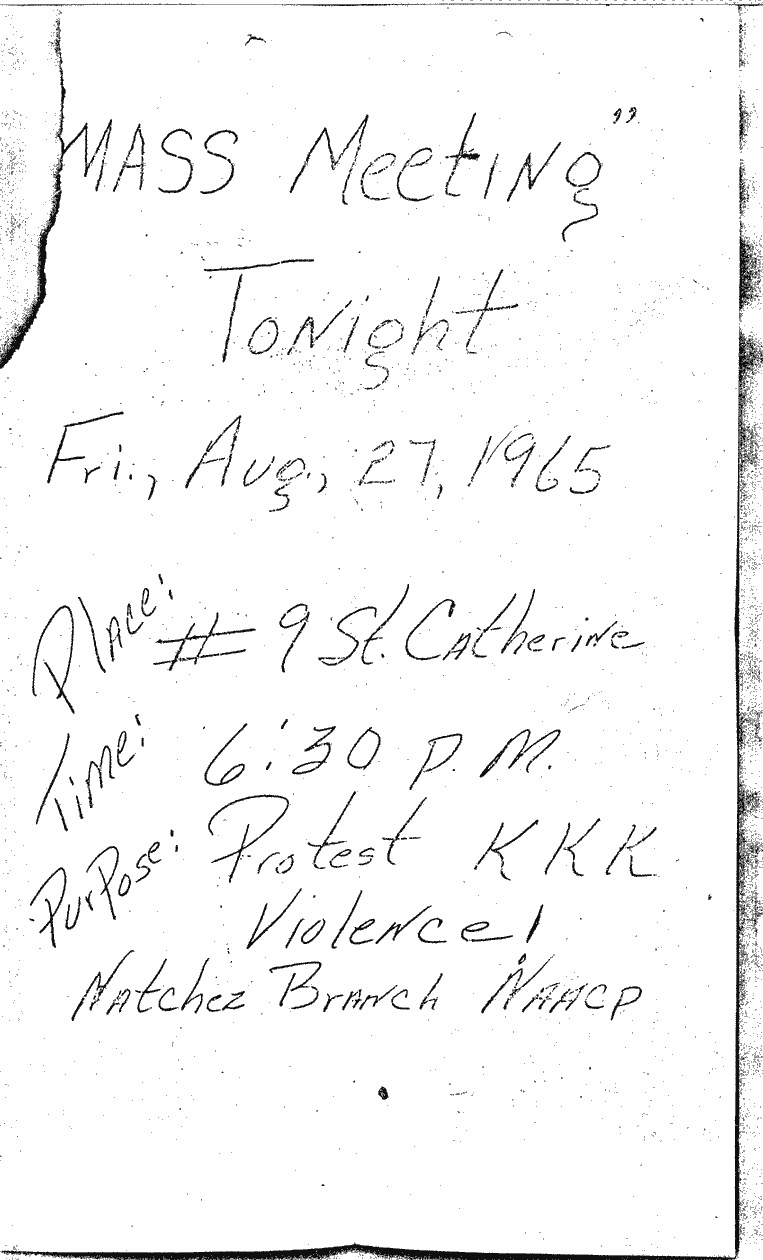 MASS MeetiNg"
ToNight
Fri., Aug., 27, 1965
Place: # 9 St. Catherine
Time: 6:30 P.M.
Purpose: Protest KKK
Violence!
Natchez Branch NAACP